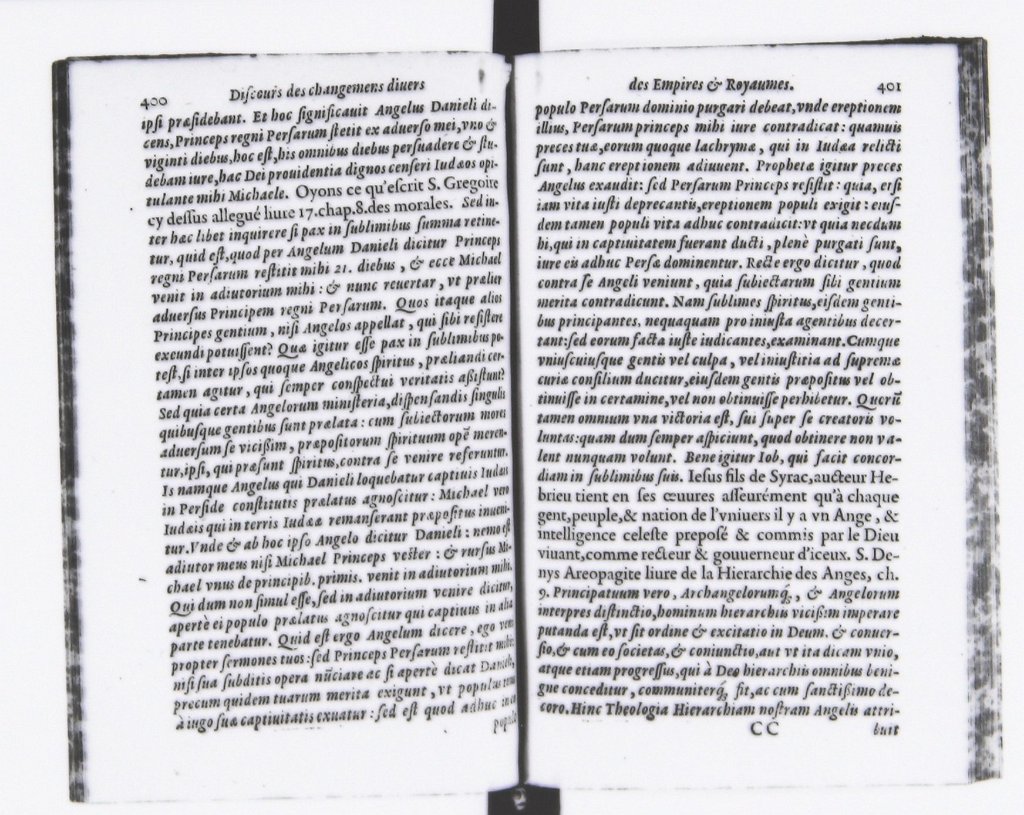 400
Discours des changemens diuers
ipsi præsidebant. Et hoc significauit Angelus Danieli di-
cens, Princeps regni Persarum stetit ex aduerso mei, vno &
viginti diebus, hoc est, his omnibus diebus persuadere & stu-
debam iure, hac Dei prouidentia dignos censeri Iudæos opi-
tulante mihi Michaele. Oyons ce qu'escrit S. Gregoire
cy dessus allegué liure 17.chap.8.des morales. Sed in-
ter hæc libet inquirere si pax in sublimibus summa retine-
tur, quid est, quod per Angelum Danieli dicitur Princeps
regni Persarum restitit mihi 21. diebus, & ecce Michael
venit in adiutorium mihi: & nunc reuertar, vt prælier
aduersus Principem regni Persarum. Quos itaque alios
Principes gentium, nisi Angelos appellat, qui sibi resistere
exeundi potuissent? Quæ igitur esse pax in sublimibus po-
test, si inter ipsos quoque Angelicos spiritus, præliandi cer-
tamen agitur, qui semper conspectui veritatis assistunt?
Sed quia certa Angelorum ministeria, dispensandis singulis
quibusque gentibus sunt prælata: cum subiectorum mores
aduersum se vicissim, præpositorum spirituum opē meren-
tur, ipsi, qui præsunt spiritus, contra se venire referuntur.
Is namque Angelus qui Danieli loquebatur captiuis Iudæis
in Perside constitutis prælatus agnoscitur: Michael vero
Iudæis qui in terris Iudææ remanserant præpositus inueni-
tur. Vnde & ab hoc ipso Angelo dicitur Danieli: nemo est
adiutor meus nisi Michael Princeps vester: & rursus Mi-
chael vnus de principib. primis. venit in adiutorium mihi.
Qui dum non simul esse, sed in adiutorium venire dicitur,
apertè ei populo prælatus agnoscitur qui captiuus in alia
parte tenebatur. Quid est ergo Angelum dicere, ego veni
propter sermones tuos: sed Princeps Persarum restitit mihi:
nisi sua subditis opera nūciare ac si apertè dicat Danieli,
precum quidem tuarum merita exigunt, vt populus tuus
à iugo suæ captiuitatis exuatur: sed est quod adhuc in ea
populo
des Empires & Royaumes.
401
populo Persarum dominio purgari debeat, vnde ereptionem
illius, Persarum princeps mihi iure contradicat: quamuis
preces tuæ, eorum quoque lachrymæ, qui in Iudæa relicti
sunt, hanc ereptionem adiuuent. Prophetæ igitur preces
Angelus exaudit: sed Persarum Princeps resistit: quia, etsi
iam vita iusti deprecantis, ereptionem populi exigit: eius-
dem tamen populi vita adhuc contradicit: vt quia necdum
hi, qui in captiuitatem fuerant ducti, plenè purgati sunt,
iure eis adhuc Persæ dominentur. Recte ergo dicitur, quod
contra se Angeli veniunt, quia subiectarum sibi gentium
merita contradicunt. Nam sublimes spiritus, eisdem genti-
bus principantes, nequaquam pro iniusta agentibus decer-
tant: sed eorum facta iuste iudicantes, examinant. Cumque
vniuscuiusque gentis vel culpa, vel iniustitia ad supremæ
curiæ consilium ducitur, eiusdem gentis præpositus vel ob-
tinuisse in certamine, vel non obtinuisse perhibetur. Quorū
tamen omnium vna victoria est, sui super se creatoris vo-
luntas: quam dum semper aspiciunt, quod obtinere non va-
lent nunquam volunt. Bene igitur Iob, qui facit concor-
diam in sublimibus suis. Iesus fils de Syrac, aucteur He-
brieu tient en ses œuures asseurément qu'à chaque
gent, peuple, & nation de l'vniuers il y a vn Ange, &
intelligence celeste preposé & commis par le Dieu
viuant, comme recteur & gouuerneur d'iceux. S. De-
nys Areopagite liure de la Hierarchie des Anges, ch.
9. Principatuum vero, Archangelorumq́;, & Angelorum
interpres distinctio, hominum hierarchiis vicissim imperare
putanda est, vt sit ordine & excitatio in Deum. & conuer-
sio, & cum eo societas, & coniunctio, aut vt ita dicam vnio,
atque etiam progressus, qui à Deo hierarchiis omnibus beni-
gne conceditur, communiterq́; sit, ac cum sanctissimo de-
coro. Hinc Theologia Hierarchiam nostram Angelis attri-
CC
buit